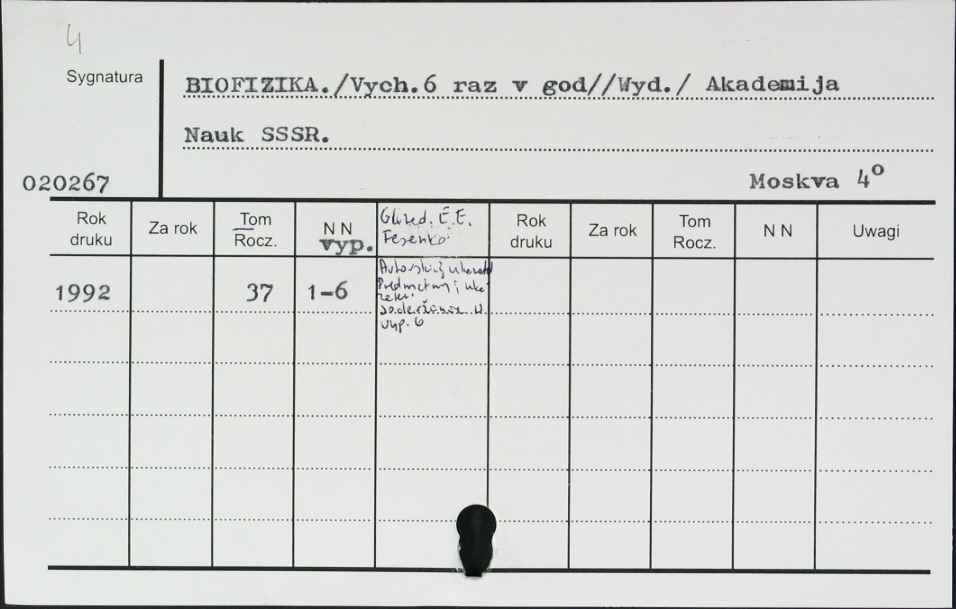 4
Sygnatura
BIOFIZIKA./Vych.6 raz v god//Wyd./ Akademija
Nauk SSSR.
020267
Moskva 4º
Rok druku
Za rok
Tom Rocz.
N N vyp.
Gl.red. E.E.
Fesenko
Rok druku
Za rok
Tom Rocz.
N N
Uwagi
1992
37
1-6
Avtorskij
Predmetnyj
vyp. 6